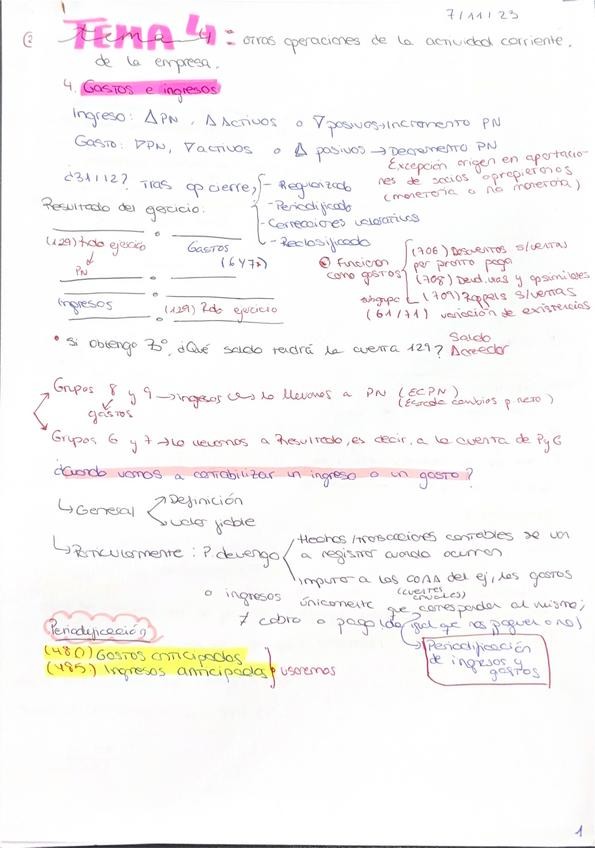 7/11/23
TEMA 4: otras operaciones de la actividad corriente
de la empresa.
4. Gastos e ingresos
Ingreso: △PN, △Activos o ▽pasivos → Incremento PN
Gasto: ▽PN, ▽activos o △ pasivos → Decremento PN
Excepción origen en aportacio-
nes de socios o propietarios
(monetaria o no monetaria)
¿31/12? Tras op cierre,
- Regularizado
- Periodificado
- Correcciones valorativas
- Reclasificado
Resultado del ejercicio:
(129) Rdo ejercicio
Gastos
PN
(6 y 7)
Ingresos
(129) Rdo ejercicio
Funcionan
como gastos
(706) Descuentos s/ventas
por pronto pago
(708) Devl. vtas y opsimilares
(709) Rappels s/ventas
subgrupo
(61/71) variación de existencias
• Si obtengo, ¿Qué saldo tendrá la cuenta 129? Saldo
Acreedor
Grupos 8 y 9 → ingresos lo llevamos a PN (ECPN)
gastos
(Estado cambios p neto)
Grupos 6 y 7 → lo llevamos a Resultado, es decir, a la cuenta de PyG
¿Cuándo vamos a contabilizar un ingreso o un gasto?
↳ General
Definición
valor fiable
↳ Particularmente: P. devengo
Hechos/transacciones contables se van
a registrar cuando ocurren
Imputar a las CCAA del ej, los gastos
(cuentas
anuales)
o ingresos únicamente que correspondan al mismo;
≠ cobro o pago (da igual que nos paguen o no)
Periodificación
de ingresos y
gastos
Periodificación
(480) Gastos anticipados
(485) Ingresos anticipados
usaremos
1